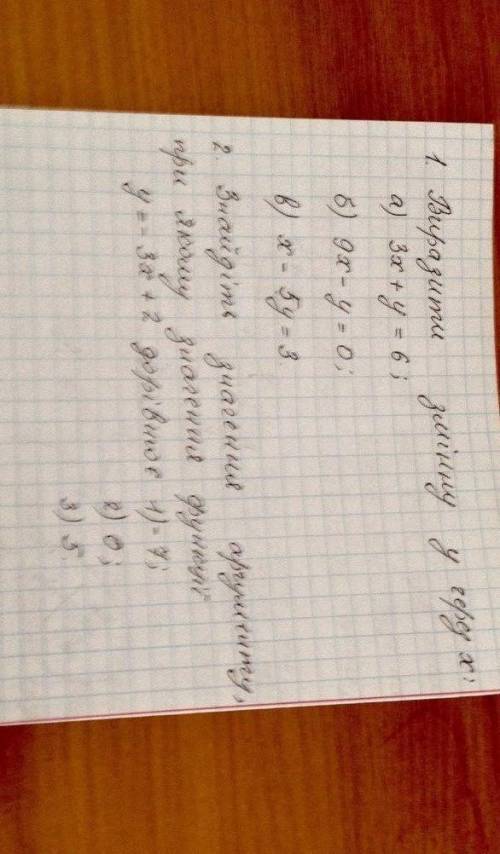 1. Виразити змінну у через х:
а) 3x + y = 6;
б) 9x - y = 0;
в) x - 5y = 3
2. Знайдіть значення аргументу,
при якому значення функції
y = - 3x + 2 дорівнює 1) -7;
2) 0;
3) 5.